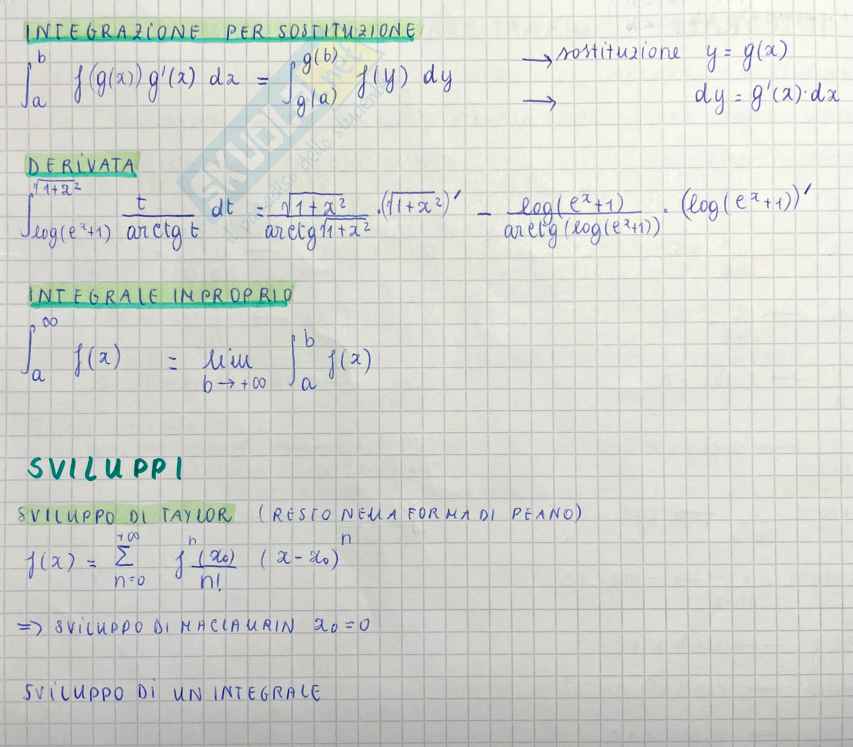 INTEGRAZIONE PER SOSTITUZIONE
∫_a^b f(g(x)) g'(x) dx = ∫_{g(a)}^{g(b)} f(y) dy → sostituzione y = g(x)
→ dy = g'(x)·dx
DERIVATA
∫_{log(e^x+1)}^{√(1+x²)} t/(arctg t) dt = √(1+x²)/(arctg √(1+x²)) · (√(1+x²))' − log(e^x+1)/(arctg(log(e^x+1))) · (log(e^x+1))'
INTEGRALE IMPROPRIO
∫_a^∞ f(x) = lim_{b→+∞} ∫_a^b f(x)
SVILUPPI
SVILUPPO DI TAYLOR (RESTO NELLA FORMA DI PEANO)
f(x) = Σ_{n=0}^{+∞} f^n(x₀)/n! (x-x₀)^n
=> SVILUPPO DI MACLAURIN x₀=0
SVILUPPO DI UN INTEGRALE